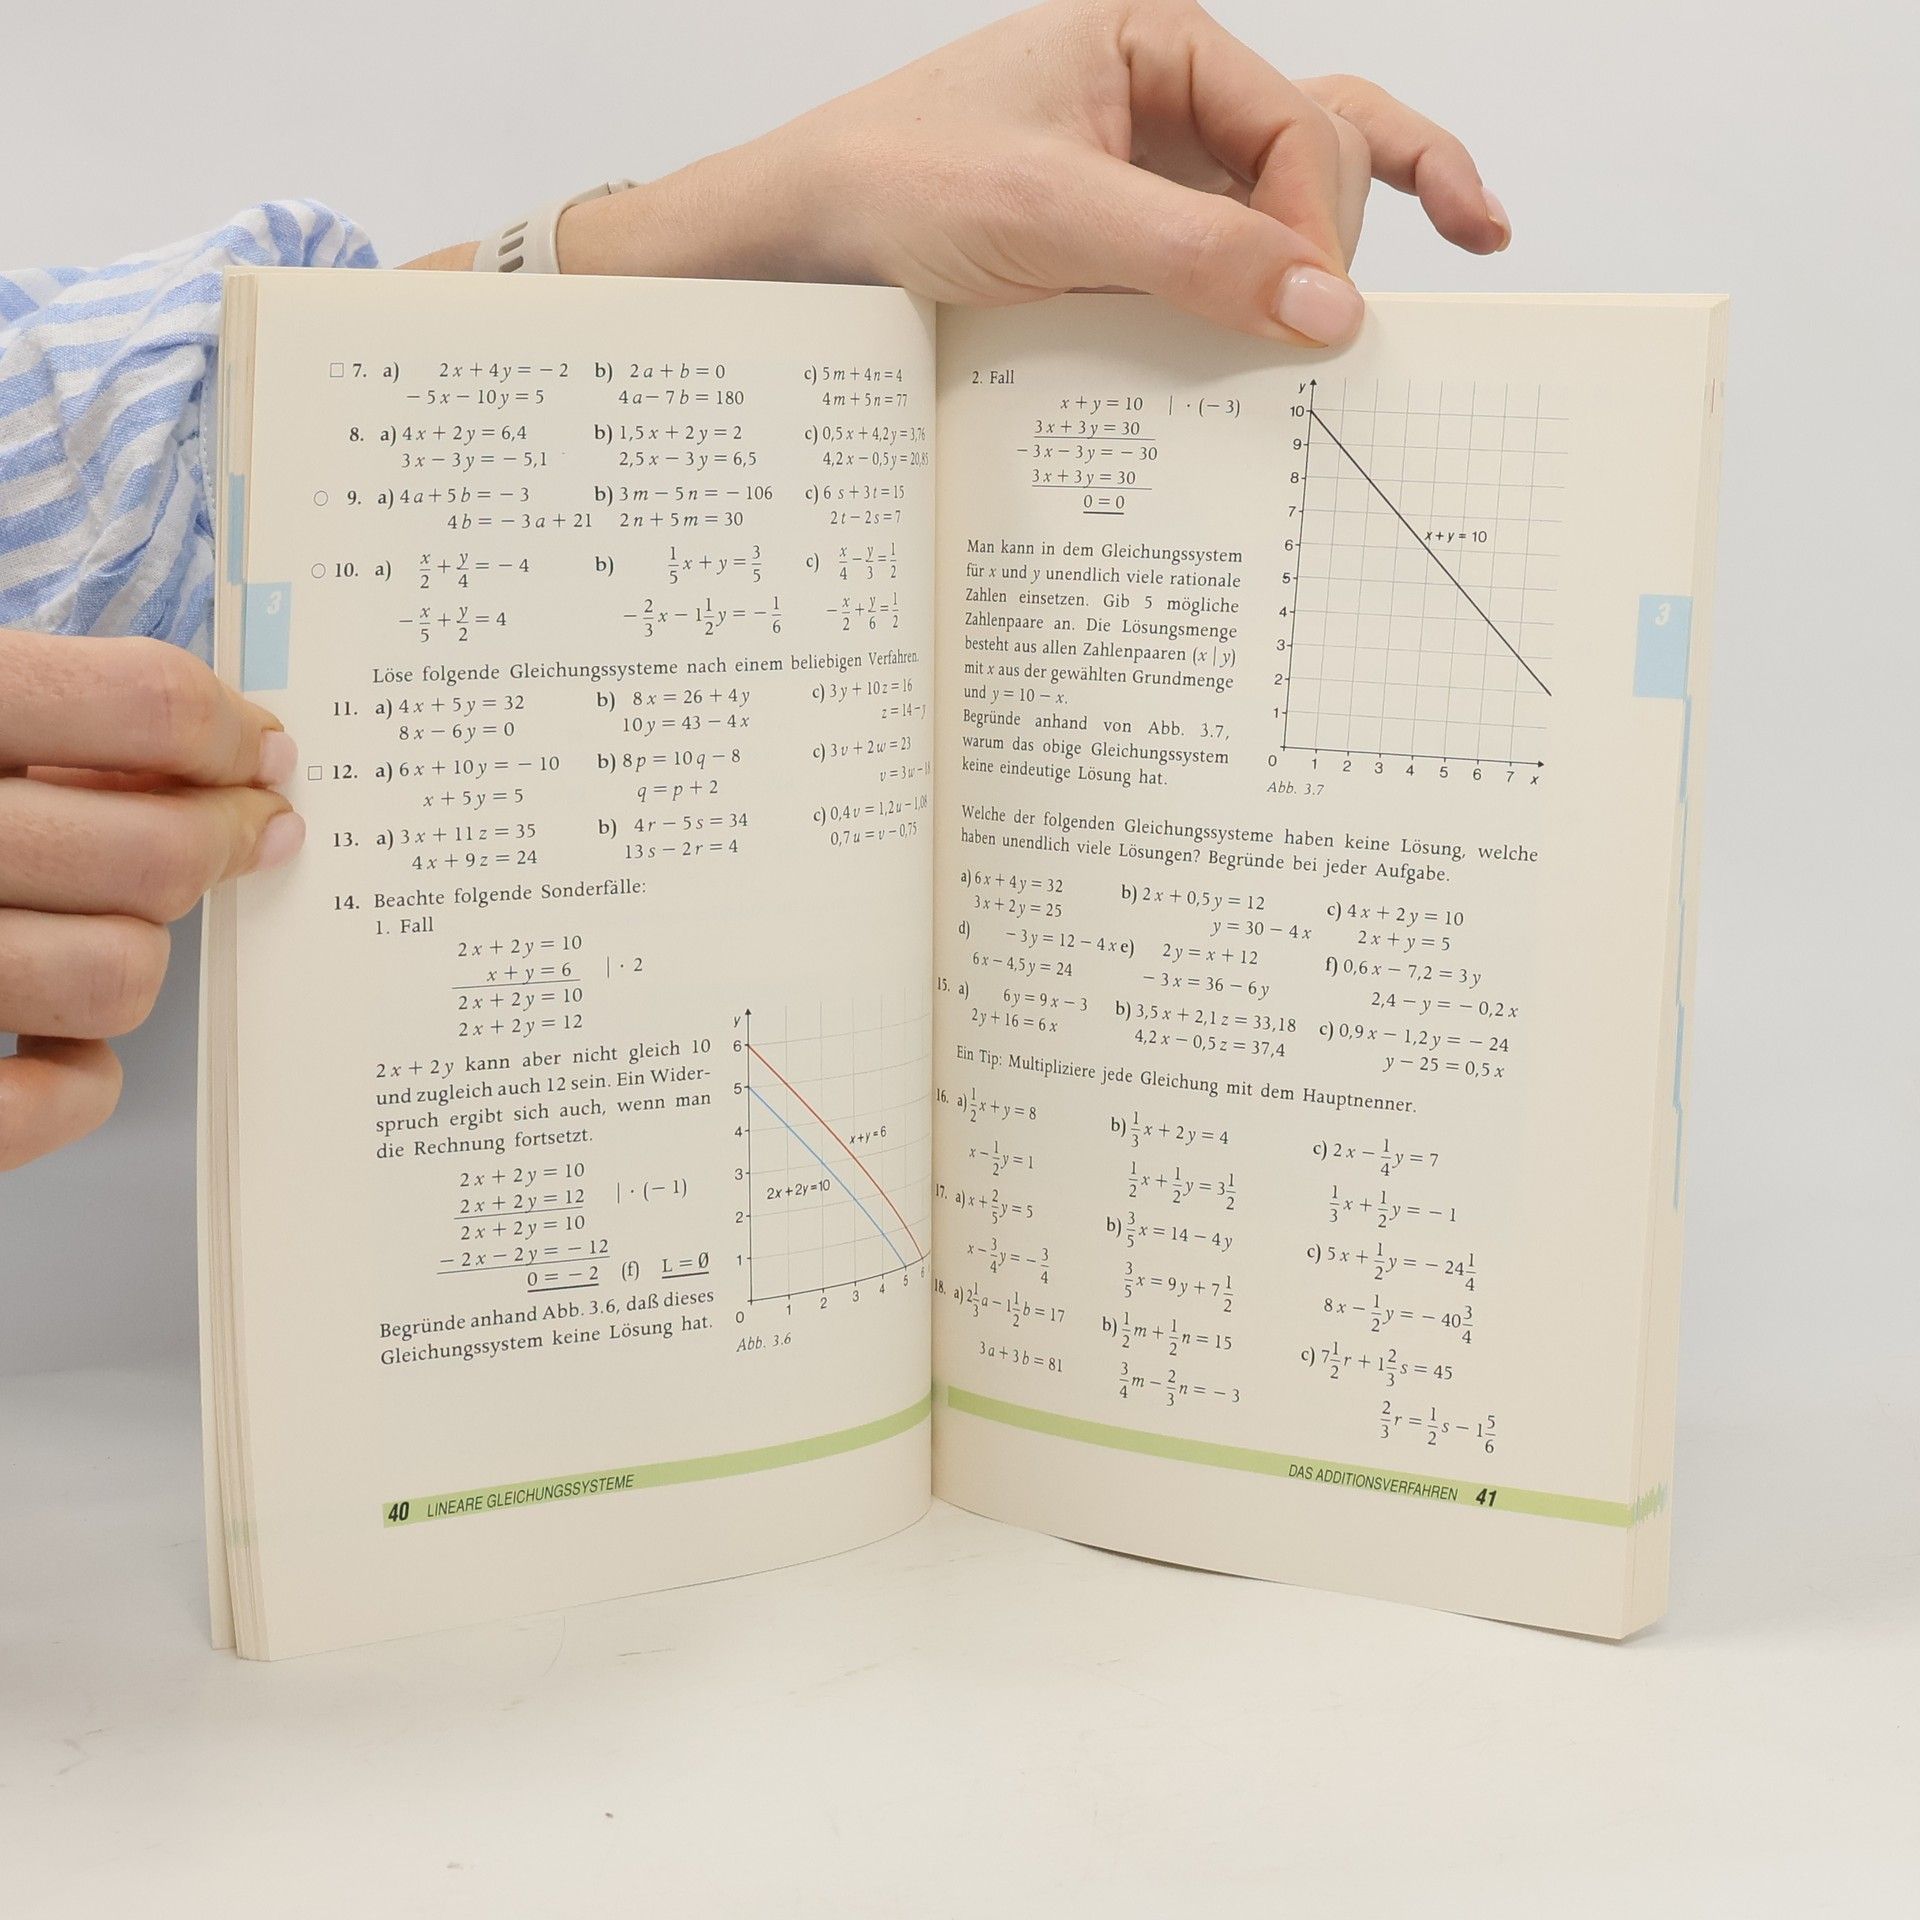 3
□ 7. a) 2x + 4y = − 2 b) 2a + b = 0 c) 5m + 4n = 4
− 5x − 10y = 5 4a − 7b = 180 4m + 5n = 77
8. a) 4x + 2y = 6,4 b) 1,5x + 2y = 2 c) 0,5x + 4,2y = 3,76
3x − 3y = − 5,1 2,5x − 3y = 6,5 4,2x − 0,5y = 20,85
○ 9. a) 4a + 5b = − 3 b) 3m − 5n = − 106 c) 6s + 3t = 15
4b = − 3a + 21 2n + 5m = 30 2t − 2s = 7
○ 10. a) x/2 + y/4 = − 4 b) 1/5 x + y = 3/5 c) x/4 − y/3 = 1/2
− x/5 + y/2 = 4 − 2/3 x − 1 1/2 y = − 1/6 − x/2 + y/6 = 1/2
Löse folgende Gleichungssysteme nach einem beliebigen Verfahren.
11. a) 4x + 5y = 32 b) 8x = 26 + 4y c) 3y + 10z = 16
8x − 6y = 0 10y = 43 − 4x z = 14 −
□ 12. a) 6x + 10y = − 10 b) 8p = 10q − 8 c) 3v + 2w = 23
x + 5y = 5 q = p + 2 v = 3w −
13. a) 3x + 11z = 35 b) 4r − 5s = 34 c) 0,4v = 1,2u − 1,08
4x + 9z = 24 13s − 2r = 4 0,7u = v − 0,75
14. Beachte folgende Sonderfälle:
1. Fall
2x + 2y = 10
x + y = 6 | · 2
2x + 2y = 10
2x + 2y = 12
2x + 2y kann aber nicht gleich 10
und zugleich auch 12 sein. Ein Wider-
spruch ergibt sich auch, wenn man
die Rechnung fortsetzt.
2x + 2y = 10
2x + 2y = 12 | · (− 1)
2x + 2y = 10
− 2x − 2y = − 12
0 = − 2 (f) L = Ø
Begründe anhand Abb. 3.6, daß dieses
Gleichungssystem keine Lösung hat.
y
6
5
4
3
2
1
0 1 2 3 4 5 6
x+y=6
2x+2y=10
Abb. 3.6
40 LINEARE GLEICHUNGSSYSTEME
2. Fall
x + y = 10 | · (− 3)
3x + 3y = 30
− 3x − 3y = − 30
3x + 3y = 30
0 = 0
Man kann in dem Gleichungssystem
für x und y unendlich viele rationale
Zahlen einsetzen. Gib 5 mögliche
Zahlenpaare an. Die Lösungsmenge
besteht aus allen Zahlenpaaren (x | y)
mit x aus der gewählten Grundmenge
und y = 10 − x.
Begründe anhand von Abb. 3.7,
warum das obige Gleichungssystem
keine eindeutige Lösung hat.
y
10
9
8
7
6
5
4
3
2
1
0 1 2 3 4 5 6 7 x
x+y = 10
Abb. 3.7
3
Welche der folgenden Gleichungssysteme haben keine Lösung, welche
haben unendlich viele Lösungen? Begründe bei jeder Aufgabe.
a) 6x + 4y = 32 b) 2x + 0,5y = 12 c) 4x + 2y = 10
3x + 2y = 25 y = 30 − 4x 2x + y = 5
d) − 3y = 12 − 4x e) 2y = x + 12 f) 0,6x − 7,2 = 3y
6x − 4,5y = 24 − 3x = 36 − 6y 2,4 − y = − 0,2x
15. a) 6y = 9x − 3 b) 3,5x + 2,1z = 33,18 c) 0,9x − 1,2y = − 24
2y + 16 = 6x 4,2x − 0,5z = 37,4 y − 25 = 0,5x
Ein Tip: Multipliziere jede Gleichung mit dem Hauptnenner.
16. a) 1/2 x + y = 8 b) 1/3 x + 2y = 4 c) 2x − 1/4 y = 7
x − 1/2 y = 1 1/2 x + 1/2 y = 3 1/2 1/3 x + 1/2 y = − 1
17. a) x + 2/5 y = 5 b) 3/5 x = 14 − 4y c) 5x + 1/2 y = − 24 1/4
x − 3/4 y = − 3/4 3/5 x = 9y + 7 1/2 8x − 1/2 y = − 40 3/4
18. a) 2 1/3 a − 1 1/2 b = 17 b) 1/2 m + 1/2 n = 15 c) 7 1/2 r + 1 2/3 s = 45
3a + 3b = 81 3/4 m − 2/3 n = − 3 2/3 r = 1/2 s − 1 5/6
DAS ADDITIONSVERFAHREN 41